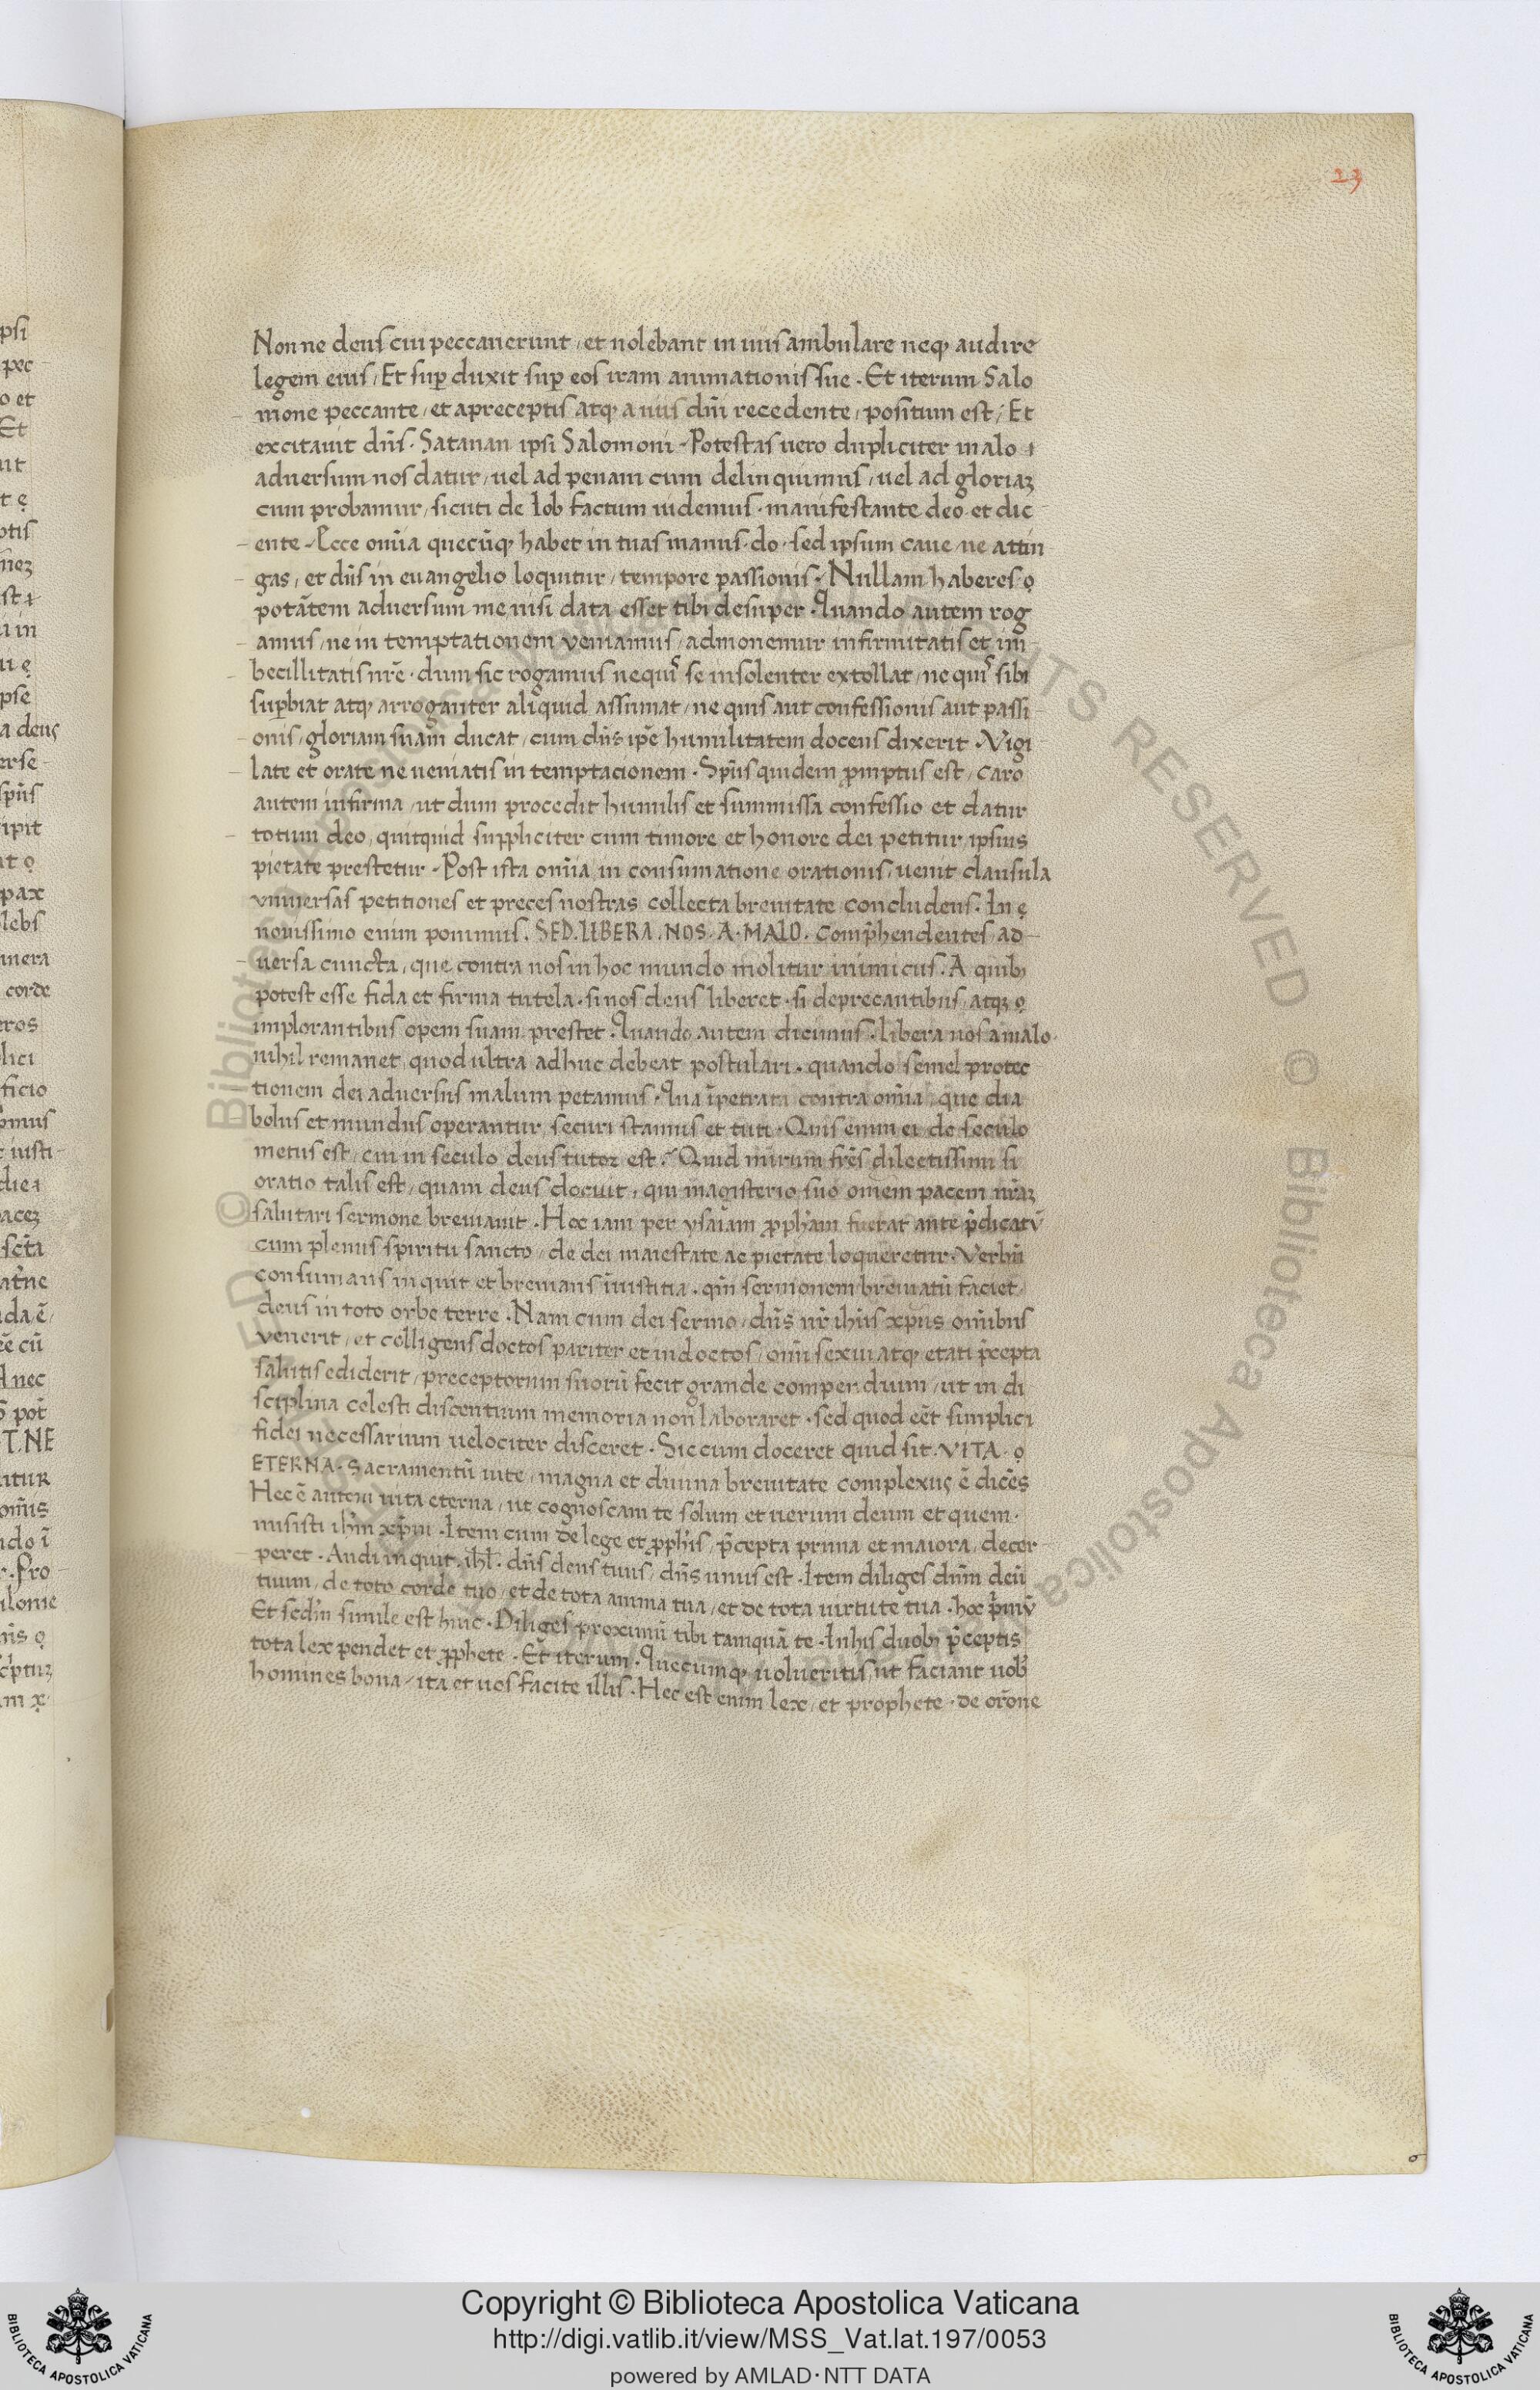 23
Non ne deus cui peccauerunt / et nolebant in uiis ambulare neqꝫ audire
legem eius / Et suꝑ duxit suꝑ eos iram animationis sue · Et iterum Salo
mone peccante / et apreceptis atqꝫ a uiis dn̄i recedente / positum est / Et
excitauit dn̄s · Satanan ipsi Salomoni · Potestas uero dupliciter malo
adversum nos datur / uel ad penam cum delinquimus / uel ad gloriaꝫ
cum probamur / sicuti de Iob factum uidemus · manifestante deo et dic
ente · Ecce om̄ia quecūqꝫ habet in tuas manus · do · sed ipsum caue / ne attin
gas / et dn̄s in euangelio loquitur / tempore passionis · Nullam haberes
potātem adversum me nisi data esset tibi desuper · Quando autem rog
amus / ne in temptationem veniamus / admonemur infirmitatis et im
becillitatis nr̄e · dum sic rogamus ne quis se insolenter extollat / ne quis sibi
suꝑbiat atqꝫ arroganter aliquid assumat / ne quis aut confessionis aut passi
onis / gloriam suam ducat / cum dn̄s ip̄e humilitatem docens dixerit · Vigi
late et orate ne ueniatis in temptacionem · Sp̄us quidem ꝓmptus est / caro
autem infirma / ut dum procedit humilis et summissa confessio et datur
totum deo / quitquid suppliciter cum timore et honore dei petitur / ipsius
pietate prestetur · Post ista om̄ia in consumatione orationis / uenit clausula
vniuersas petitiones et preces nostras collecta breuitate concludens · In
nouissimo enim ponimus · SED · LIBERA · NOS · A · MALO · Comp̄hendentes / ad
uersa cuncta / que contra nos in hoc mundo molitur inimicus · A quibꝫ
potest esse fida et firma tutela · si nos deus liberet · si deprecantibus / atqꝫ
implorantibus opem suam prestet · Quando autem dicimus · libera nos a malo ·
nihil remanet / quod ultra adhuc debeat postulari · quando semel protec
tionem dei adversus malum petamus · Qua īpetrata contra om̄ia / que dia
bolus et mundus operantur / securi stamus et tuti · Quis enim ei de seculo
metus est / cui in seculo deus tutor est · Quid mirum fr̄es dilectissimi si
oratio talis est / quam deus docuit / qui magisterio suo om̄em pacem nr̄aꝫ
salutari sermone breuiauit · Hec iam per ysaiam ꝓph̄am fuerat ante p̄dicatū
cum plenus spiritu sancto / de dei maiestate ac pietate loqueretur · Verbū
consumans inquit et breuians īiustitia · qm̄ sermonem breuiatū faciet /
deus in toto orbe terre · Nam cum dei sermo / dn̄s nr̄ ih̄us xp̄us om̄ibus
venerit / et colligens doctos pariter et indoctos / om̄i sexui atqꝫ etati p̄cepta
salutis ediderit / preceptorum suorū fecit grande compendium / ut in di
sciplina celesti discentium memoria non laboraret · sed quod eēt simplici
fidei necessarium uelociter disceret · Sic cum doceret quid sit · VITA ·
ETERNA · Sacramentū uite / magna et diuina breuitate complexus ē dicēs
Hec ē autem uita eterna / ut cognoscam te solum et uerum deum et quem ·
misisti ih̄m xp̄m · Item cum de lege et ꝓph̄is / p̄cepta prima et maiora / decer
peret · Audi inquit · ih̄l · dn̄s deus tuus / dn̄s unus est · Item diliges dn̄m deū
tuum / de toto corde tuo / et de tota anima tua / et de tota uirtute tua · hoc p̄mū
Et sedm̄ simile est huic · Diliges proximū tibi tamquā te · In his duobꝫ p̄ceptis
tota lex pendet et ꝓphete · Et iterum · Quecumqꝫ uolueritis / ut faciant uob̄
homines bona / ita et uos facite illis · Hec est enim lex / et prophete · de or̄one
Copyright © Biblioteca Apostolica Vaticana
http://digi.vatlib.it/view/MSS_Vat.lat.197/0053
powered by AMLAD·NTT DATA